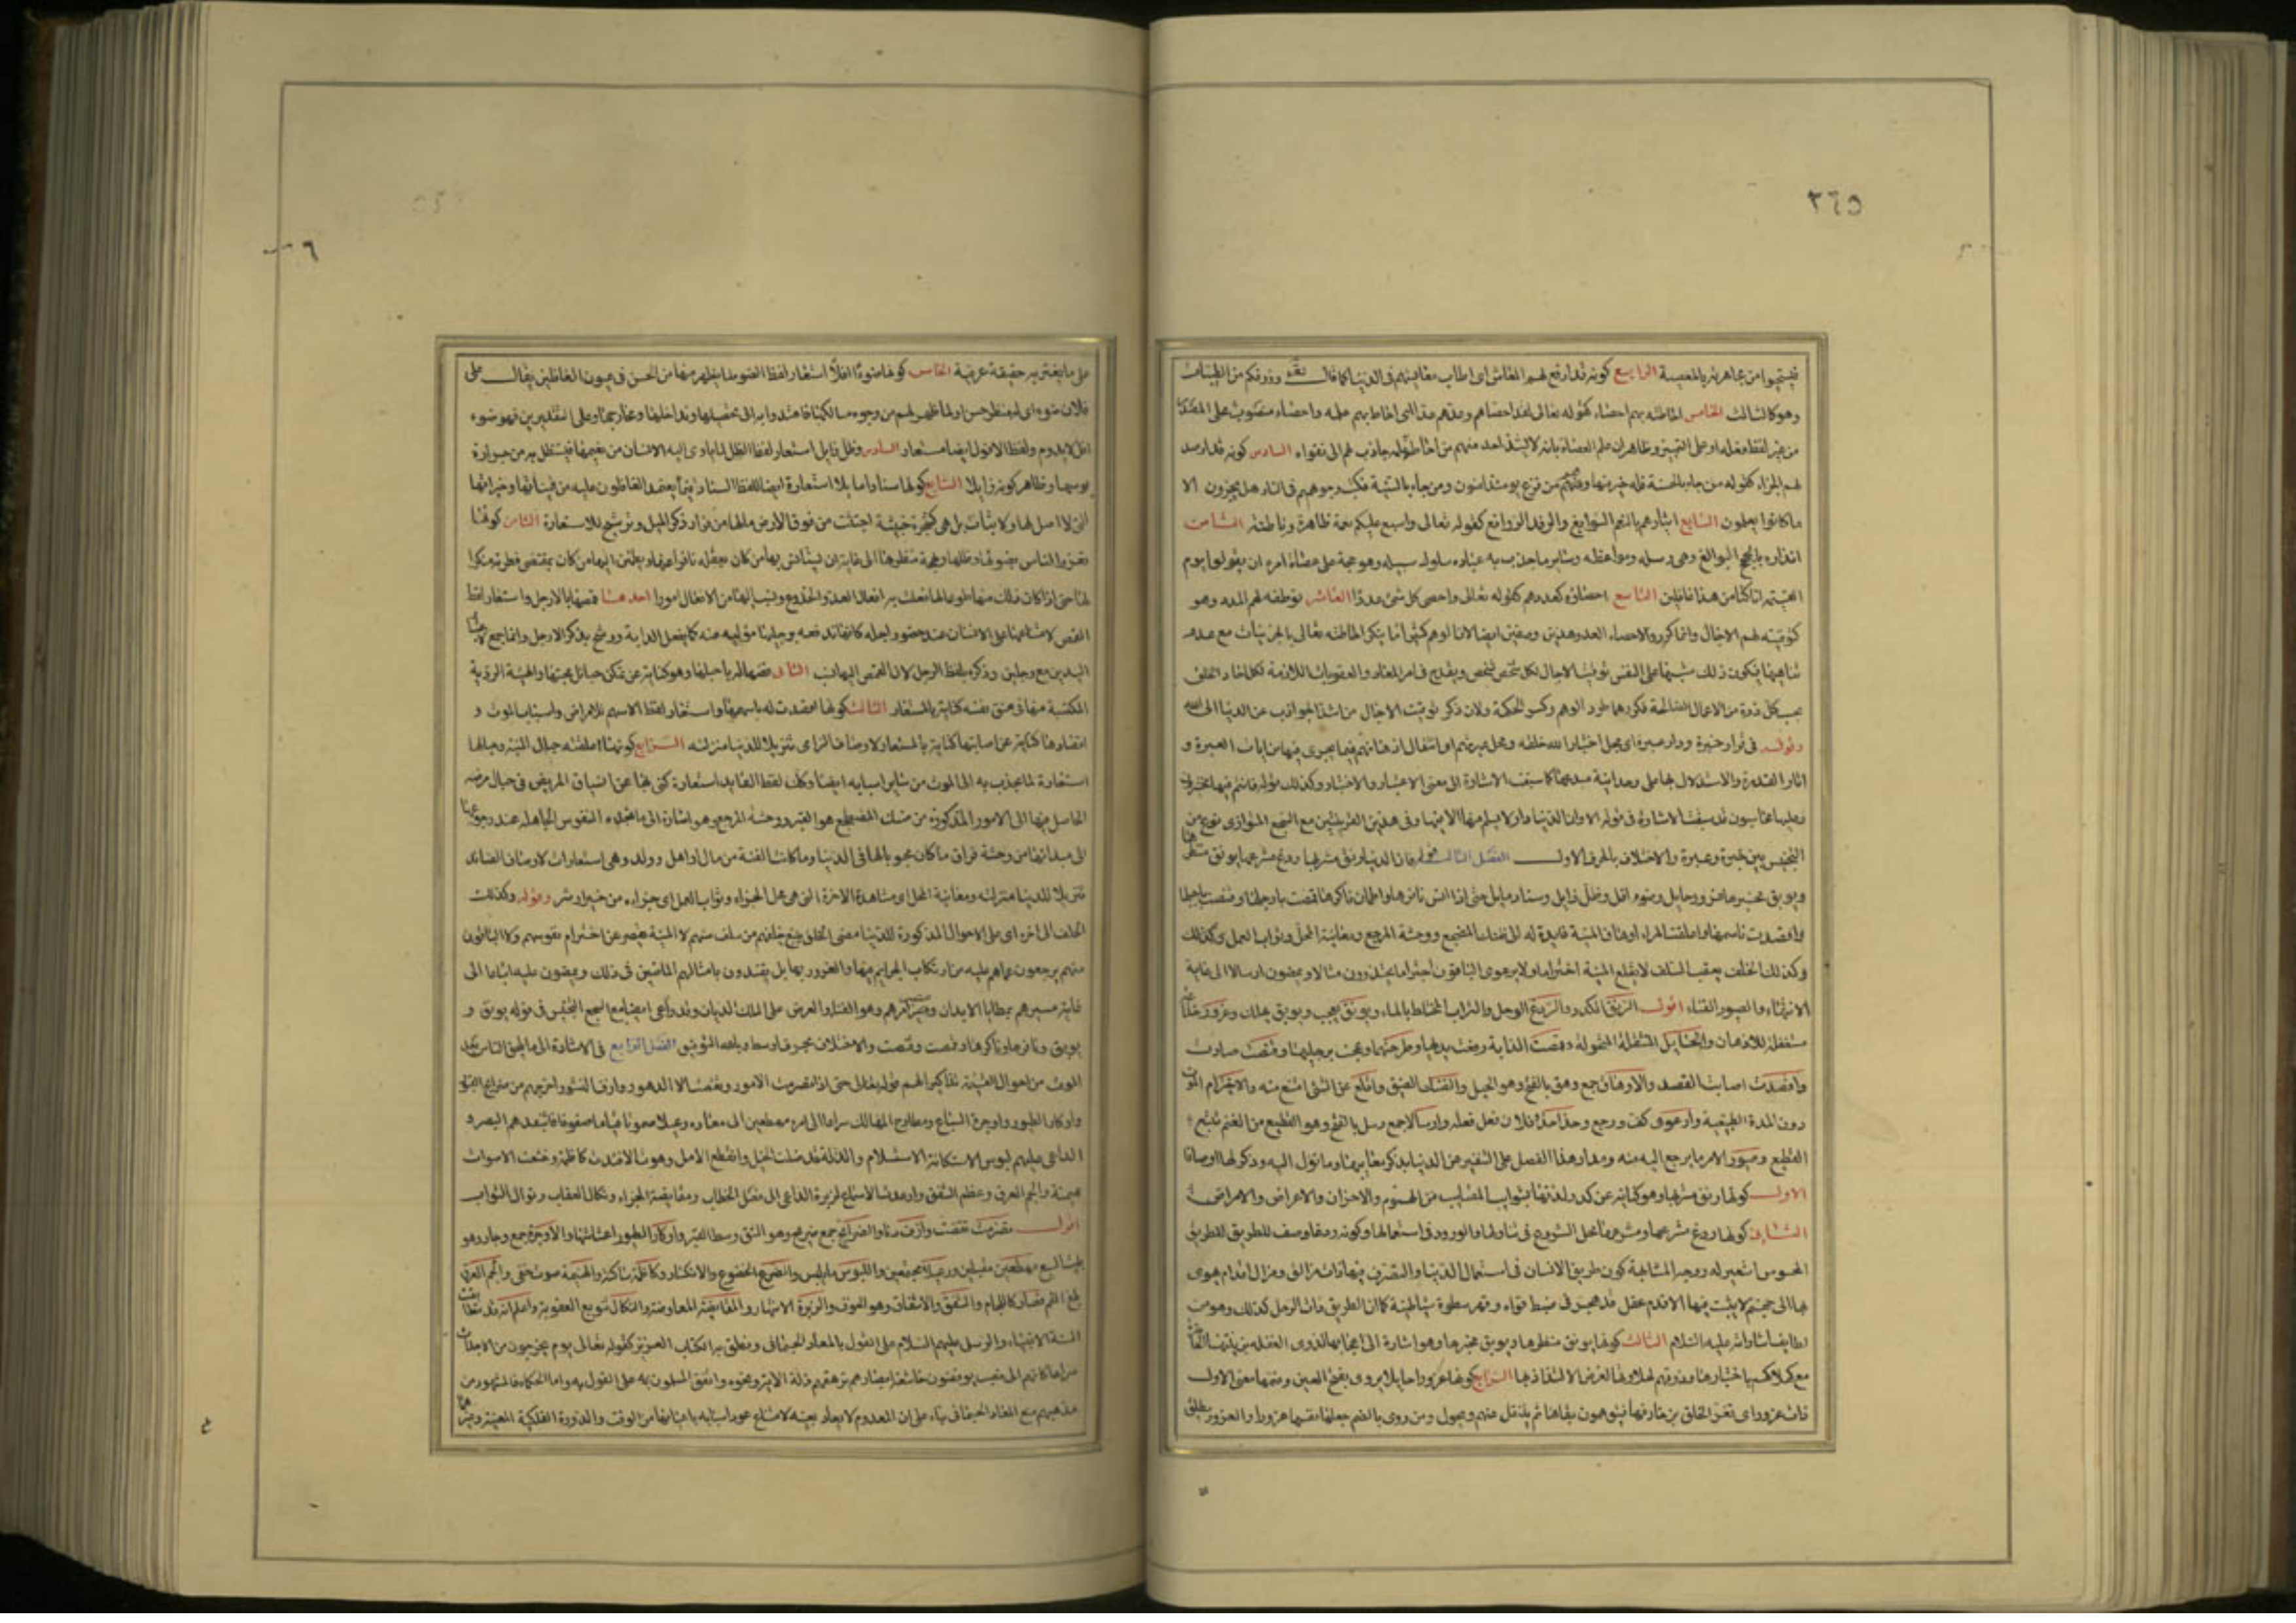 ٢٦٥
فيستحيوا من مجاهرته بالمعصية الرابع كونه قد ارفع لهم المعاش اى اطاب معايشهم فى الدنيا كما قال تعه ورزقكم من الطيبات
وهو كالثالث الخامس احاطته بهم احصاء كقوله تعالى لقد احصاهم وعدهم عدا اى احاط بهم علمه واحصاء منصوب على المصدر
من غير لفظ فعله او على التمييز وظاهر ان علم العصاة بانه لا يشذ احد منهم من احاطة علمه جاذب لهم الى تقواه السادس كونه قد ارصد
لهم الجزاء كقوله من جاء بالحسنة فله خير منها وهم من فزع يومئذ امنون ومن جاء بالسيئة فكبت وجوههم فى النار هل يجزون الا
ما كانوا يعملون السابع ايثارهم بالنعم السوابغ والرفد الروافغ كقوله تعالى واسبغ عليكم نعمه ظاهرة وباطنة الثامن
انذاره بالحجج البوالغ وهى رسله ومواعظه وساير ما جذب به عباده سلوك سبيله وهو حجة على عصاة امره ان يقولوا يوم
القيمة انا كنا عن هذا غافلين التاسع احصاؤه كعددهم كقوله تعالى واحصى كل شئ عددا العاشر توظيفه لهم المدد وهو
كتوقيته لهم الاجال وانما كرر والاحصاء العدد هنا وصفين ايضا لان الوهم كثيرا ما ينكر احاطته تعالى بالجزئيات مع عدم
تناهيها فيكون ذلك مشبها على النفس توقيت الاجال لكل شخص شخص ويقدح فى امر المعاد والعقوبات اللازمة لكل احاد الخلق
بحسب كل ذرة من الاعمال الصالحة فكررهما طرد الوهم وكسر الحكمة ولان ذكر توقيت الاجال من اشد الجواذب عن الدنيا الى الله
وقوله فى قرار خبرة ودار عبرة اى محل اختبار الله خلقه ومحل عبرتهم اى انتقال اذهانهم فيما يجرى فيها من ايات العبرة و
اثار القدرة والاستدلال بها على وحدانية مبدعها كما سبقت الاشارة الى معنى الاعتبار والاختبار وكذلك قوله فانتم فيها مختبرون
وعليها محاسبون قد سبقت الاشارة فى قوله الا وان الدنيا دار لا يسلم منها الا فيها وفى هذين القرينتين مع السجع المتوازى نوع من
التجنيس بين خبرة وعبرة والاختلاف بالحرف الاول الفصل الثالث قوله فان الدنيا رنق مشربها ردغ مشرعها يونق منظرها
ويوبق مخبرها غرور حايل وضوء افل وظل زايل وسناد مايل حتى اذا انس نافرها واطمان ناكرها قمصت بارجلها وقنصت باحبلها
واقصدت باسهمها واعلقت المرء اوهاق المنية قايدة له الى ضنك المضجع ووحشة المرجع ومعاينة المحل وثواب العمل وكذلك
وكذلك الخلف يعقب السلف لا يقلع المنية اختراما ولا يرعوى الباقون اجتراما يحتذون مثالا ويمضون ارسالا الى غاية
الانتهاء وصيور الفناء اقول الرنق الكدر والردغ الوحل والتراب المختلط بالماء ويونق يعجب ويوبق يهلك وغرور
مستغفلة للاذهان والحايل وقمصت الدابة رفعت يديها وطرحتهما وعجنت برجليها وقنصت صادت
واقصدت اصابت القصد والاوهاق جمع وهق بالفتح وهو الحبل والضنك الضيق واقلع عن الشئ امتنع منه والاخترام الموت
دون المدة الطبيعية وارعوى كف ورجع وحذا حذو فلان فعل فعله وارسالا جمع رسل بالفتح وهو القطيع من الغنم يتبع
القطيع وصيور الامر ما يرجع اليه منه ومدار هذا الفصل على التنفير عن الدنيا بذكر معايبها وما تؤل اليه وذكر لها اوصافا
الاول كونها رنق مشربها وهو كناية عن كدر لذتها بشوايب المصايب من الهموم والاحزان والاعراض والامراض
الثانى كونها ردغ مشرعها ومشرعها محل الشروع فى تناولها والورود فى استعمالها وكونه ردغا وصف للطريق
المحسوس استعير له ووجه المشابهة كون طريق الانسان فى استعمال الدنيا والتصرف فيها ذات مزالق ومزال اقدام يهوى
بها الى جهنم لا يثبت فيها الا قدم عقل قد هجر فى ضبط قواه وقهر سطوة شياطينه كما ان الطريق ذات الوحل كذلك وهو من
لطايف اشاراته عليه السلام الثالث كونها يونق منظرها ويوبق مخبرها وهو اشارة الى اعجابها لذوى الغفلة بزينتها
مع هلاكهم باختبارها وذوقهم لحلاوتها الرابع كونها غرورا حايلا يروى بفتح العين وضمها معنى الاول
ذات غرور اى تغر الخلق بزخارفها فيتوهمون بقاءها ثم ينتقل عنهم ويحول ومن روى بالضم جعلها نفسها غرورا والغرور يطلق
٦
على ما يغتر به حقيقة عرفية الخامس كونها ضوءا افلا استعار لفظ الضوء لما يظهر منها من الحسن فى عيون الغافلين يقال على
فلان ضوء اى له منظر حسن او لما ظهر لهم من وجوه مسالكها فاهتدوا به الى تحصيلها ومداخلها ومخارجها وعلى التقديرين فهو ضوء
افل لا يدوم ولفظ الافول ايضا مستعار السادس وظل زايل استعار لفظ الظل لما ياوى اليه الانسان من نعيمها فيستظل به من حرارة
بوسها وظاهر كونه زايلا السابع كونها سنادا مايلا استعارة ايضا للفظ السناد لما يعتمد الغافلون عليه من قيناتها وخيراتها
التى لا اصل لها ولا ثبات بل هى كشجرة خبيثة اجتثت من فوق الارض ما لها من قرار ذكر الميل وترشيح للاستعارة الثامن كونها
تغر الناس بضوئها وظلها وبهجة منظرها الى غاية ان يستانس بها من كان بعقله نافرا عنها ويطمئن اليها من كان بمقتضى فطرته منكرا
لها حتى اذا كان ذلك منها طوعا لها فعلت به افعال العدو الخدوع ونسب اليها من الافعال امورا احدها قمصها بالارجل واستعار لفظ
القمص لامتناعها على الانسان عند حضور اجله كانها تدفعه برجليها مؤلية عنه كما يفعل الدابة ورشح بذكر الارجل وانما جمع
اليدين مع رجلين وذكره بلفظ الرجل لان القمص اليها انسب الثانى قنصها له باحبلها وهو كناية عن تمكن حبائل محبتها والهيئة الردية
المكتسبة منها فى عنق نفسه كناية بالمستعار الثالث كونها اقصدت له باسهمها واستعار لفظ الاسهم للامراض واسباب الموت و
اقصادها كناية عن اصابتها كناية بالمستعار لاوصاف الرامى تنزيلا للدنيا منزلته الرابع كونها اعلقته حبال المنية وحبالها
استعارة لما يجذب به الى الموت من ساير اسبابه ايضا وكذا لفظ القايد استعارة كنى بها عن انسياق المريض فى حبال مرضه
الحاصل منها الى الامور المذكورة من ضنك المضطجع هو القبر ووحشة المرجع وهو اشارة الى ما تجده النفوس الجاهلة عند رجوعها
الى مبدائها من وحشة فراق ما كان محبوبا لها فى الدنيا وما كانت الفته من مال او اهل وولد وهى استعارات لاوصاف الصائد
تنزيلا للدنيا منزلته ومعاينة المحل اى مشاهدة الاخرة التى هى محل الجزاء وثواب العمل اى جزاءه من خير او شر وقوله وكذلك
الخلف الى اخره اى على الاحوال المذكورة للدنيا مضى الخلق يتبع خلفهم من سلف منهم لا المنية تقصر عن اخترام نفوسهم ولا الباقون
منهم يرجعون عما هم عليه من ارتكاب الجرايم فيها والغرور بها بل يقتدون بامثالهم الماضين فى ذلك ويمضون عليه اتباعا الى
غاية مسيرهم بمطايا الابدان ومصير امرهم وهو الفناء والعرض على الملك الديان وقد راعى ايضا مع السجع التجنيس فى قوله يونق و
يوبق ونافرها وناكرها وقمصت وقنصت والاختلاف بحرف اوسط وبالله التوفيق الفصل الرابع فى الاشارة الى ما يلحق الناس بعد
الموت من اهوال القيمة تذكيرا لهم قوله حتى اذا تصرمت الامور وتقضت الدهور وازف النشور اخرجهم من ضرايح القبور
واوكار الطيور واوجرة السباع ومطارح المهالك سراعا الى امره مهطعين الى معاده رعيلا صموتا قياما صفوفا ينفذهم البصر و
الداعى عليهم لبوس الاستكانة وضرع الاستسلام والذلة قد ضلت الحيل وانقطع الامل وهوت الافئدة كاظمة وخشعت الاصوات
مهينمة والجم العرق وعظم الشفق وارعدت الاسماع لزبرة الداعى الى فصل الخطاب ومقايضة الجزاء ونكال العقاب ونوال الثواب
اقول تصرمت تقضت وازف دنا والضرائح جمع ضريح وهو الشق وسط القبر واوكار الطيور اعشاشها والاوجرة جمع وجار وهو
بيت السبع مهطعين مقبلين ورعيلا مجتمعين واللبوس ما يلبس والضرع الخضوع والانكسار وكاظمة ساكنة والهينمة صوت خفى والجم العرق
بلغ الفم فصار كاللجام والشفق والاشفاق وهو الخوف والزبرة الانتهار والمقايضة المعاوضة والنكال تنويع العقوبة واعلم انه قد تطابقت
السنة الانبياء والرسل عليهم السلام على القول بالمعاد الجسمانى ونطق به الكتاب العزيز كقوله تعالى يوم يخرجون من الاجداث
سراعا كانهم الى نصب يوفضون خاشعة ابصارهم ترهقهم ذلة الاية ونحوه واتفق المسلمون به على القول به واما الحكماء فالمشهور من
مذهبهم منع المعاد الجسمانى بناء على ان المعدوم لا يعاد بعينه لامتناع عود اسبابه باعيانها من الوقت والدورة الفلكية المعينة وغيرها